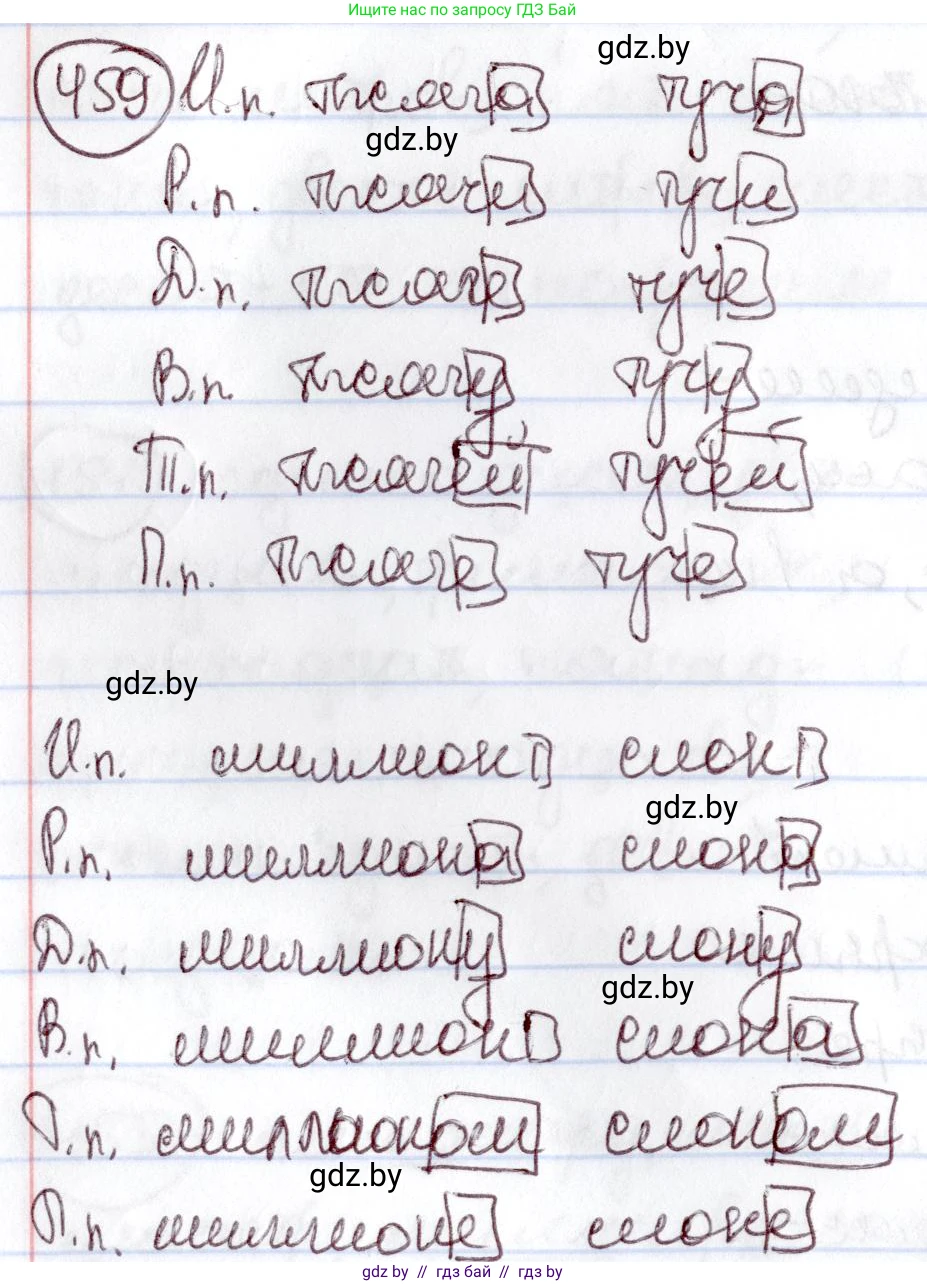 Ищите нас по запросу ГДЗ Бай
gdz.by
459 И.п. тысяча туча
gdz.by
Р.п. тысячи тучи
Д.п. тысяче туче
В.п. тысячу тучу
Т.п. тысячей тучей
П.п. тысяче туче
gdz.by
И.п. миллион слон
gdz.by
Р.п. миллиона слона
Д.п. миллиону слону
gdz.by
В.п. миллион слона
Т.п. миллионом слоном
gdz.by
П.п. миллионе слоне
gdz.by // гдз бай // гдз by